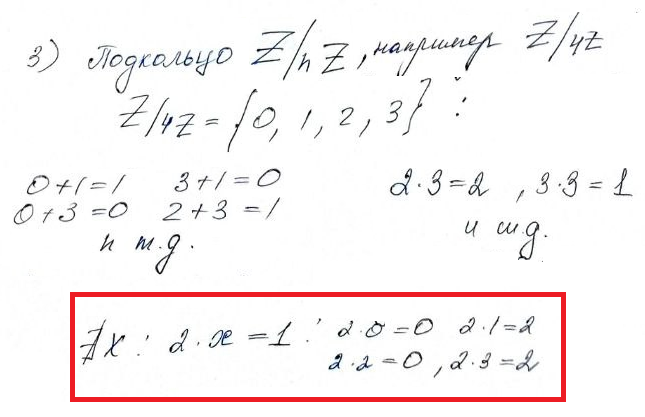 3) Подкольцо Z/nZ, например Z/4Z
Z/4Z = {0, 1, 2, 3} :
0+1=1 3+1=0 2·3=2 , 3·3=1
0+3=0 2+3=1 и т.д.
и т.д.
∄x : 2·x=1 : 2·0=0 2·1=2
2·2=0 , 2·3=2